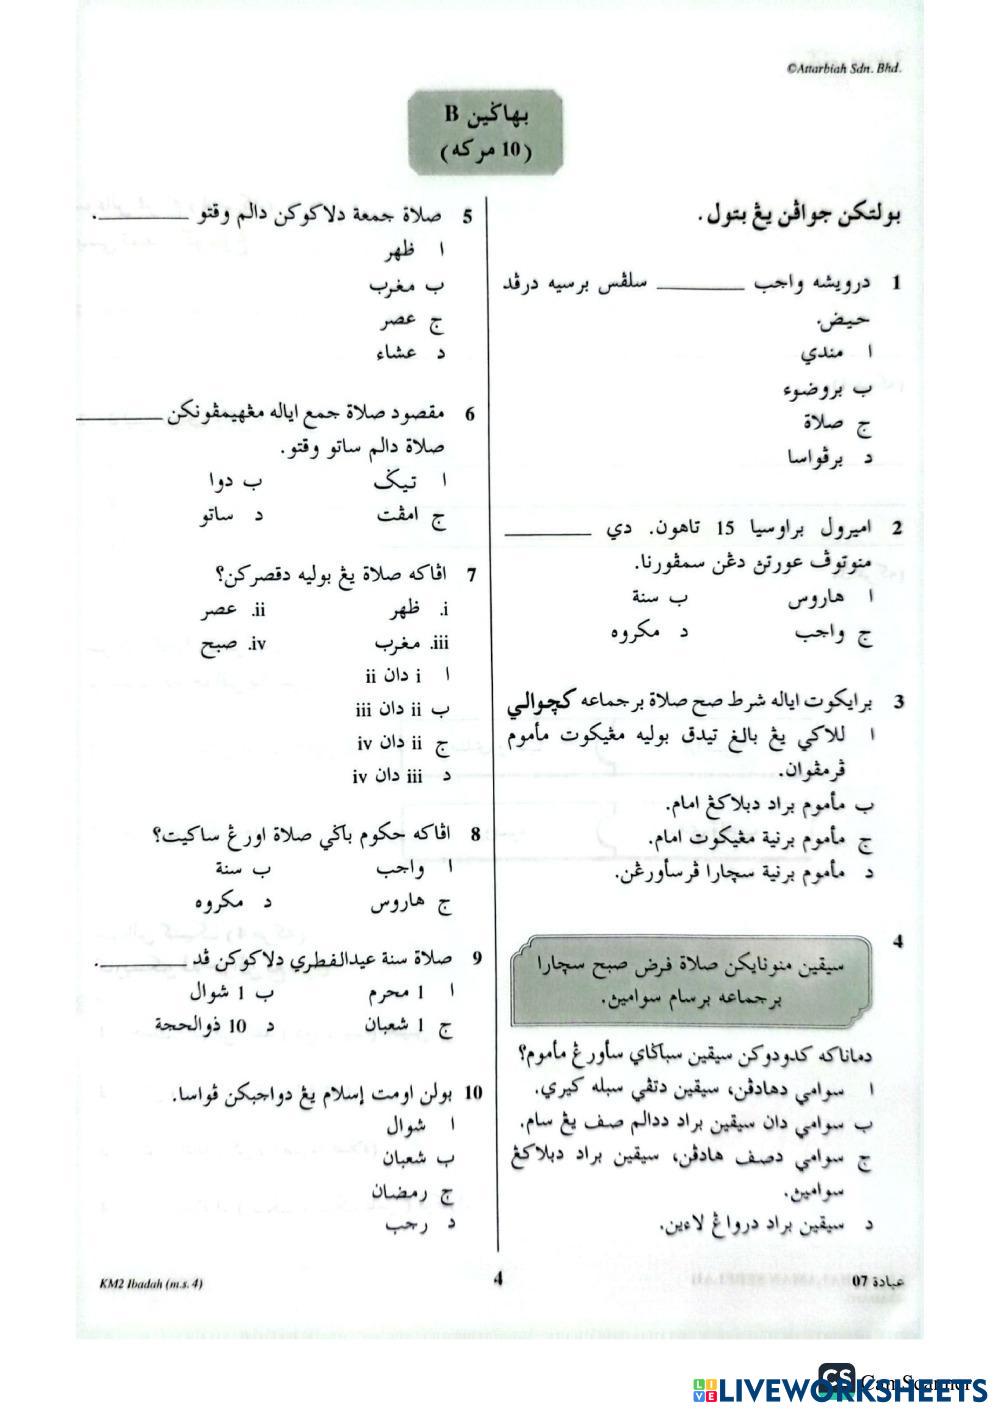 ©Attarbiah Sdn. Bhd.
بهاڬين B
(10 مركه)
بولتكن جواڤن يڠ بتول.
1 درويشه واجب ________ سلڤس برسيه درڤد
حيض.
ا مندي
ب بروضوء
ج صلاة
د برڤواسا
2 اميرول براوسيا 15 تاهون. دي ________
منوتوڤ عورتڽ دڠن سمڤورنا.
ا هاروس ب سنة
ج واجب د مكروه
3 برايكوت اياله شرط صح صلاة برجماعه كچوالي
ا للاكي يڠ بالغ تيدق بوليه مڠيكوت مأموم
ڤرمڤوان.
ب مأموم براد دبلاكڠ امام.
ج مأموم برنية مڠيكوت امام.
د مأموم برنية سچارا ڤرسأورڠن.
4
سيقين منونايكن صلاة فرض صبح سچارا
برجماعه برسام سواميڽ.
دماناكه كدودوكن سيقين سباڬاي سأورڠ مأموم؟
ا سوامي دهادڤن، سيقين دتڤي سبله كيري.
ب سوامي دان سيقين براد ددالم صف يڠ سام.
ج سوامي دصف هادڤن، سيقين براد دبلاكڠ
سواميڽ.
د سيقين براد درواڠ لاءين.
5 صلاة جمعة دلاكوكن دالم وقتو ________.
ا ظهر
ب مغرب
ج عصر
د عشاء
6 مقصود صلاة جمع اياله مڠهيمڤونكن ________
صلاة دالم ساتو وقتو.
ا تيڬ ب دوا
ج امڤت د ساتو
7 اڤاكه صلاة يڠ بوليه دقصركن؟
i. ظهر ii. عصر
iii. مغرب iv. صبح
ا i دان ii
ب ii دان iii
ج ii دان iv
د iii دان iv
8 اڤاكه حكوم باڬي صلاة اورڠ ساكيت؟
ا واجب ب سنة
ج هاروس د مكروه
9 صلاة سنة عيدالفطري دلاكوكن ڤد ________.
ا 1 محرم ب 1 شوال
ج 1 شعبان د 10 ذوالحجة
10 بولن اومت إسلام يڠ دواجبكن ڤواسا.
ا شوال
ب شعبان
ج رمضان
د رجب
KM2 Ibadah (m.s. 4)
4
عبادة 07
CS
LIVEWORKSHEETS